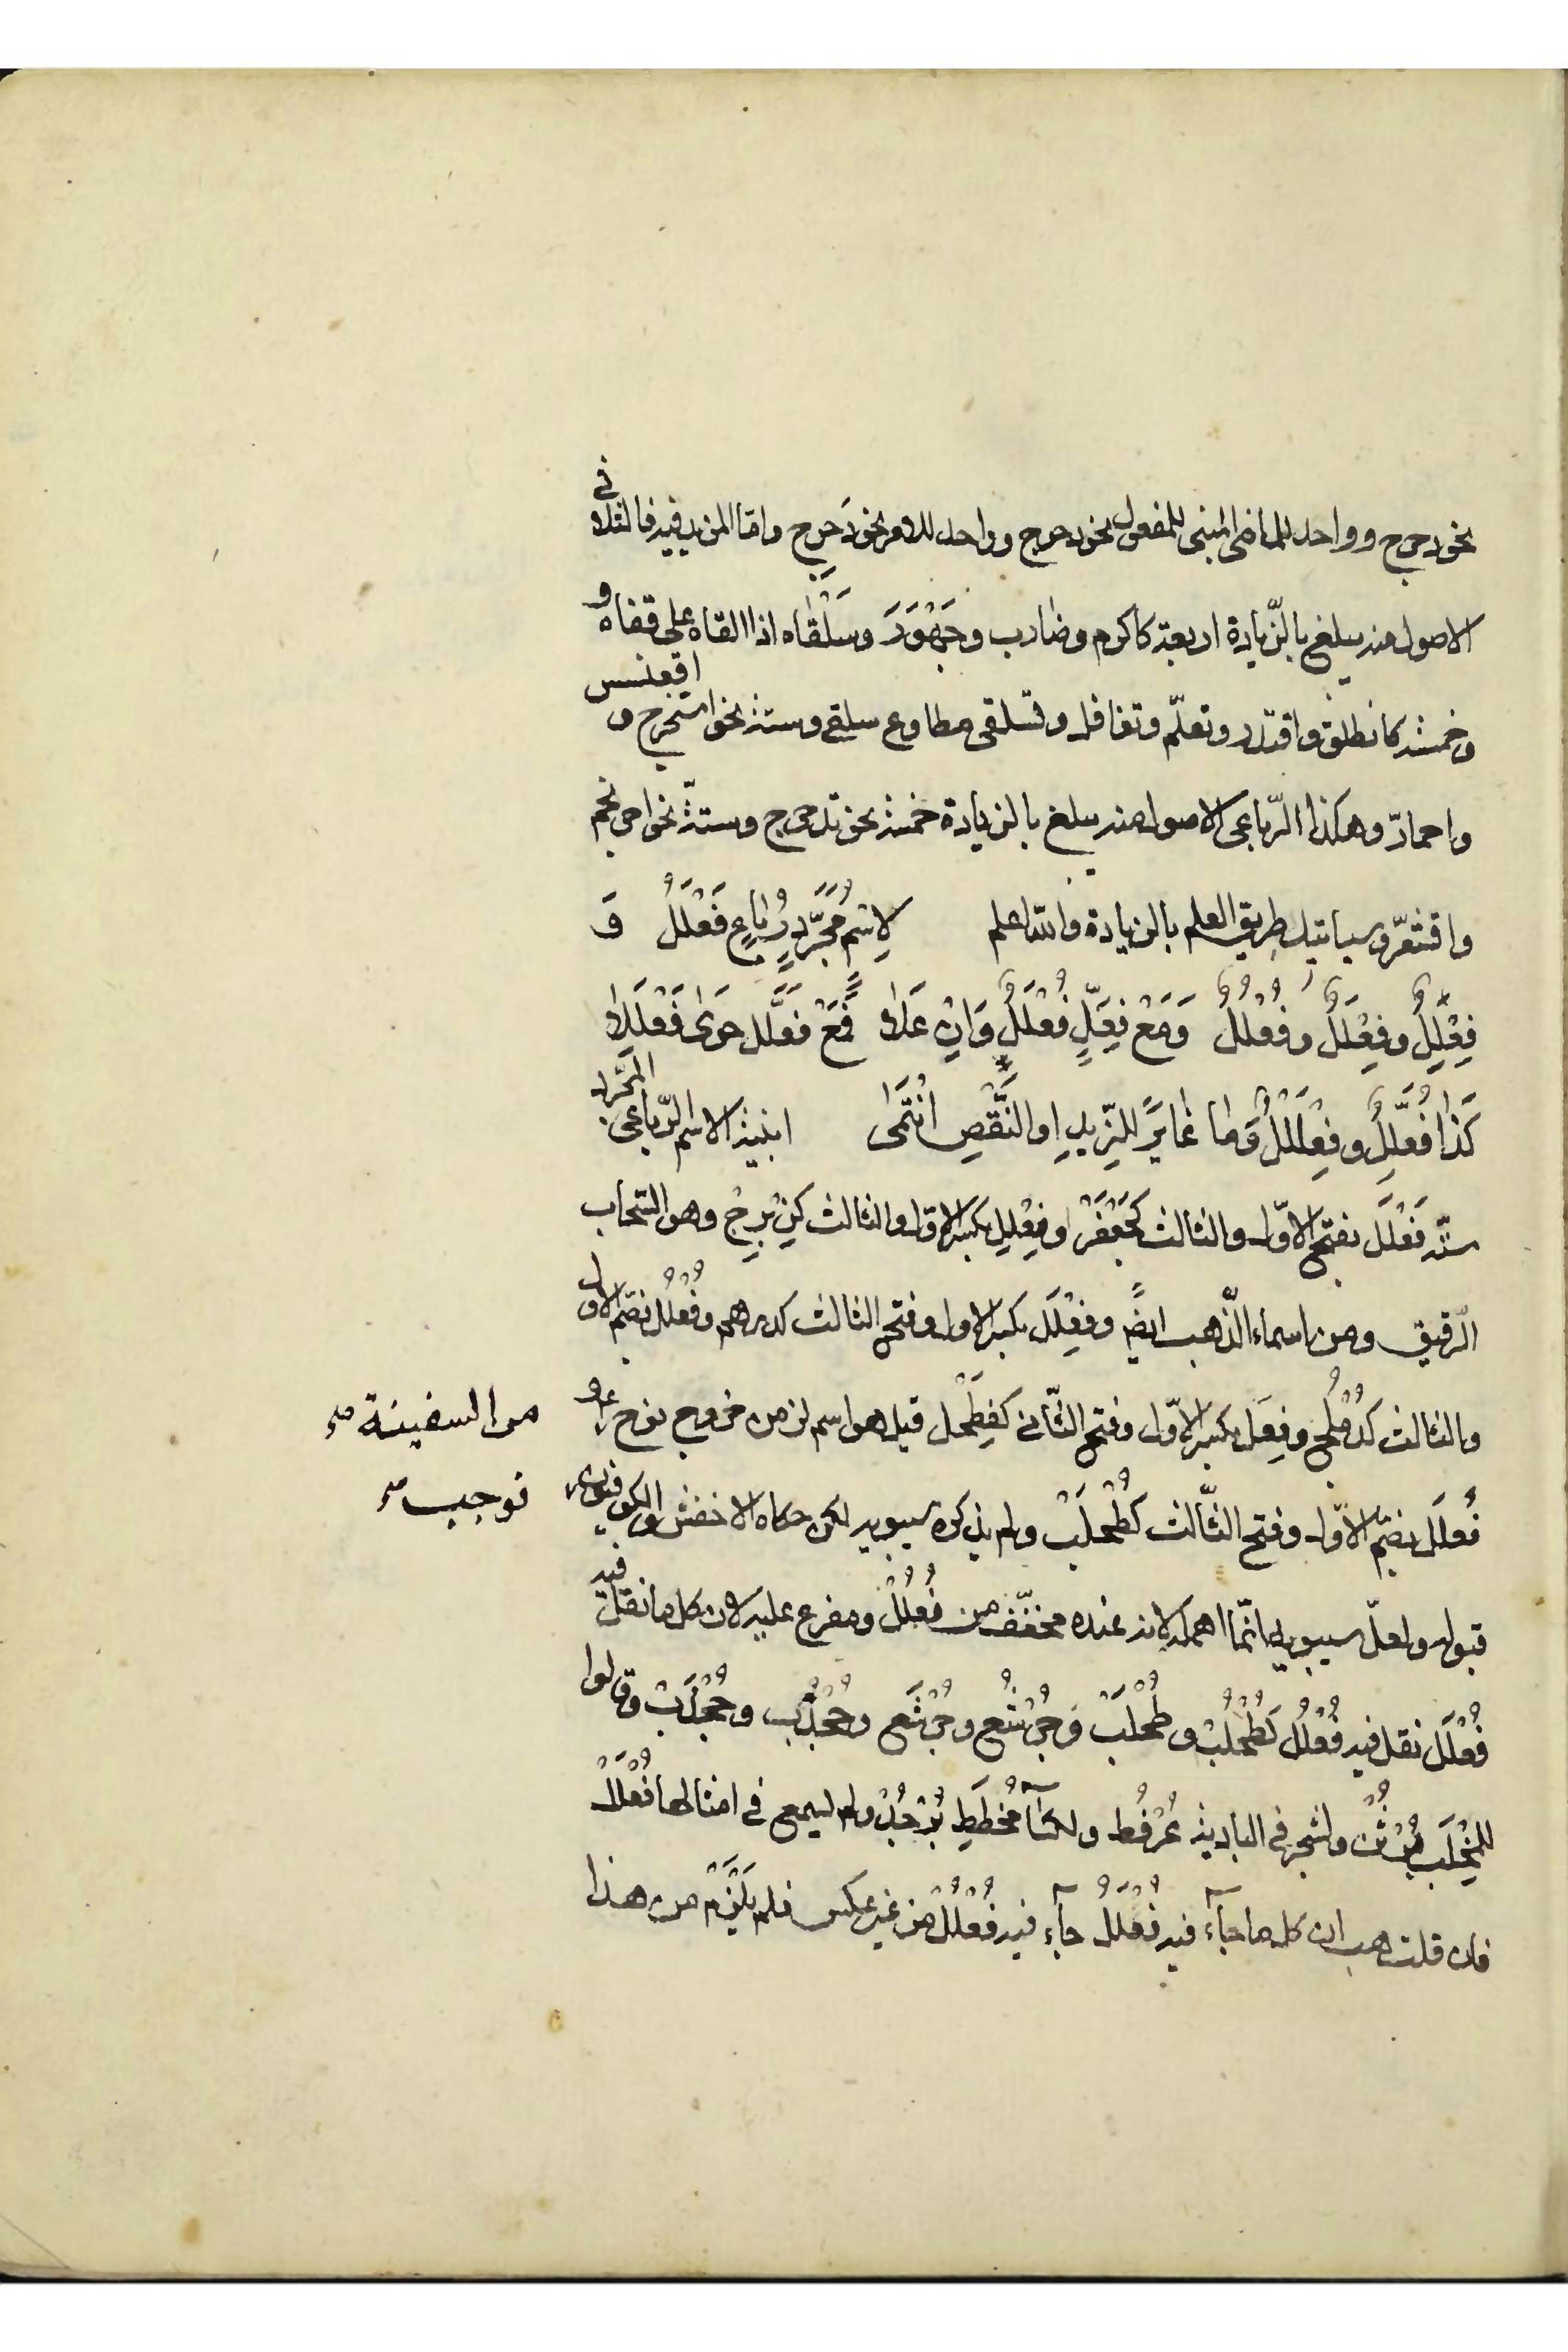 نحو دحرج وواحد للماضى المبنى للمفعول نحو دحرج وواحد للامر نحو دَحرِج وامّا المزيد فيه فالثلاثى
الاصول منه يبلغ بالزّيادة اربعة كاكرم وضارب وجَهْوَرَ وسَلْقاه اذا القاه على قفاه و
وخمسة كانطلق واقتدر وتعلّم وتغافل وتسلقى مطاوع سلقى وستة نحو استخرج و اقعنسس
واحمارّ وهكذا الرّباعى الاصول منه يبلغ بالزيادة خمسة نحو تدحرج وستّة نحو احرنجم
واقشعرّ وسياتيك طريق العلم بالزيادة والله اعلم لِاسْمٍ مُجَرَّدٍ رُبَاعٍ فَعْلَلُ وَ
فِعْلِلٌ وفِعْلَلٌ وفُعْلُلُ وَمَعْ فِعَلٍّ فُعْلَلٌ وَاِنْ عَلا فَمَعْ فَعَلَّلٍ حَوَى فَعْلَلِلا
كَذَا فُعَلِّلٌ وفِعْلَلٌّ وَمَا غَايَرَ للزّيدِ او النَّقْصِ انْتَمَى ابنية الاسم الرّباعى المجرّد
ستّة فَعْلَل بفتح الاوّل والثالث كجَعْفَرٍ وفِعْلِل بكسر الاول والثالث كزِبْرِجٍ وهو السّحاب
الرّقيق ومن اسماء الذّهب ايضًا وفِعْلَل بكسر الاول وفتح الثالث كدرهم وفُعْلُل بضمّ الاول
والثالث كدُمْلُج وفِعَلّ بكسر الاوّل وفتح الثّانى كفِطَحْل قيل هو اسم لزمن خروج نوح ع و
من السفينة صح
فُعلَل بضمّ الاوّل وفتح الثّالث كطُحْلَب ولم يذكره سيبويه لكن حكاه الاخفش والكوفيون
فوجب صح
قبوله ولعلّ سيبويه انّما اهمله لانه عنده مخفّف من فُعْلُلٌ ومفرع عليه لان كل ما نقل فيه
فُعْلَل نقل فيه فُعْلُل كطُحْلُب وطُحْلَب وجُرْشُع وجُرْشَع وجُخْدُب وجُخْدَب وقالوا
للمِخْلَب بُرْثُن ولشجر فى البادية عُرْفُط ولكسآءٍ مُخطَّطٍ بُرْجُدٌ ولم يسمع فى امثالها فُعْلَلٌ
فان قلت هب ان كل ما جآء فيه فُعْلَلٌ جآء فيه فُعْلُلٌ من غير عكس فلم يَلْزَم من هذا